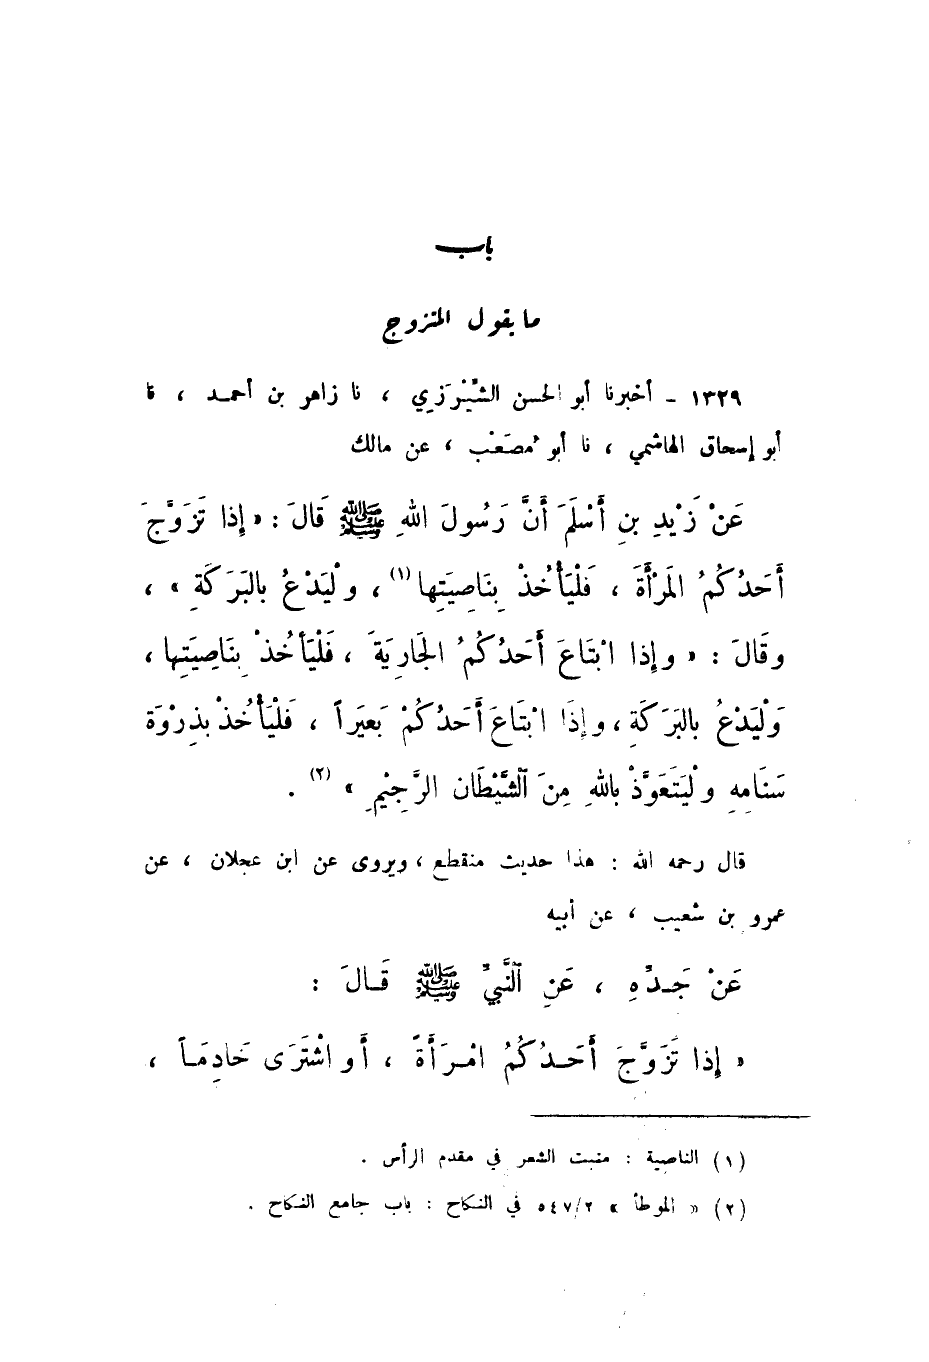 باب
ما يقول المتزوج
١٣٢٩ - أخبرنا أبو الحسن الشِّيْرَزي ، نا زاهر بن أحمد ، نا
أبو إسحاق الهاشمي ، نا أبو مصْعَب ، عن مالك
عَنْ زَيْدِ بنِ أَسْلَمَ أَنَّ رَسُولَ اللهِ ﷺ قَالَ : « إذا تَزَوَّجَ
أَحَدُكُمُ المَرْأَةَ ، فَلْيَأْخُذْ بِنَاصِيَتِها (١) ، ولْيَدْعُ بالبَرَكَةِ » ،
وقَالَ : « وإذا ابْتَاعَ أَحَدُكُمُ الجَارِيَةَ ، فَلْيَأخُذْ بِنَاصِيَتِها ،
وَلْيَدْعُ بالبَرَكَةِ ، وإذَا ابْتَاعَ أَحَدُكُمْ بَعيَراً ، فَلْيَأْخُذْ بذِرْوَةِ
سَنَامِهِ ولْيَتَعَوَّذْ باللهِ مِنَ الشَّيْطَانِ الرَّجِيْمِ » (٢) .
قال رحمه الله : هذا حديث منقطع ، ويروى عن ابن عجلان ، عن
عمرو بن شعيب ، عن أبيه
عَنْ جَدِّهِ ، عَنِ النَّبيِّ ﷺ قَالَ :
« إذا تَزَوَّجَ أَحَدُكُمُ امْرَأَةً ، أَو اشْتَرَى خَادِمَاً ،
(١) الناصية : منبت الشعر في مقدم الرأس .
(٢) « الموطأ » ٥٤٧/٢ في النكاح : باب جامع النكاح .